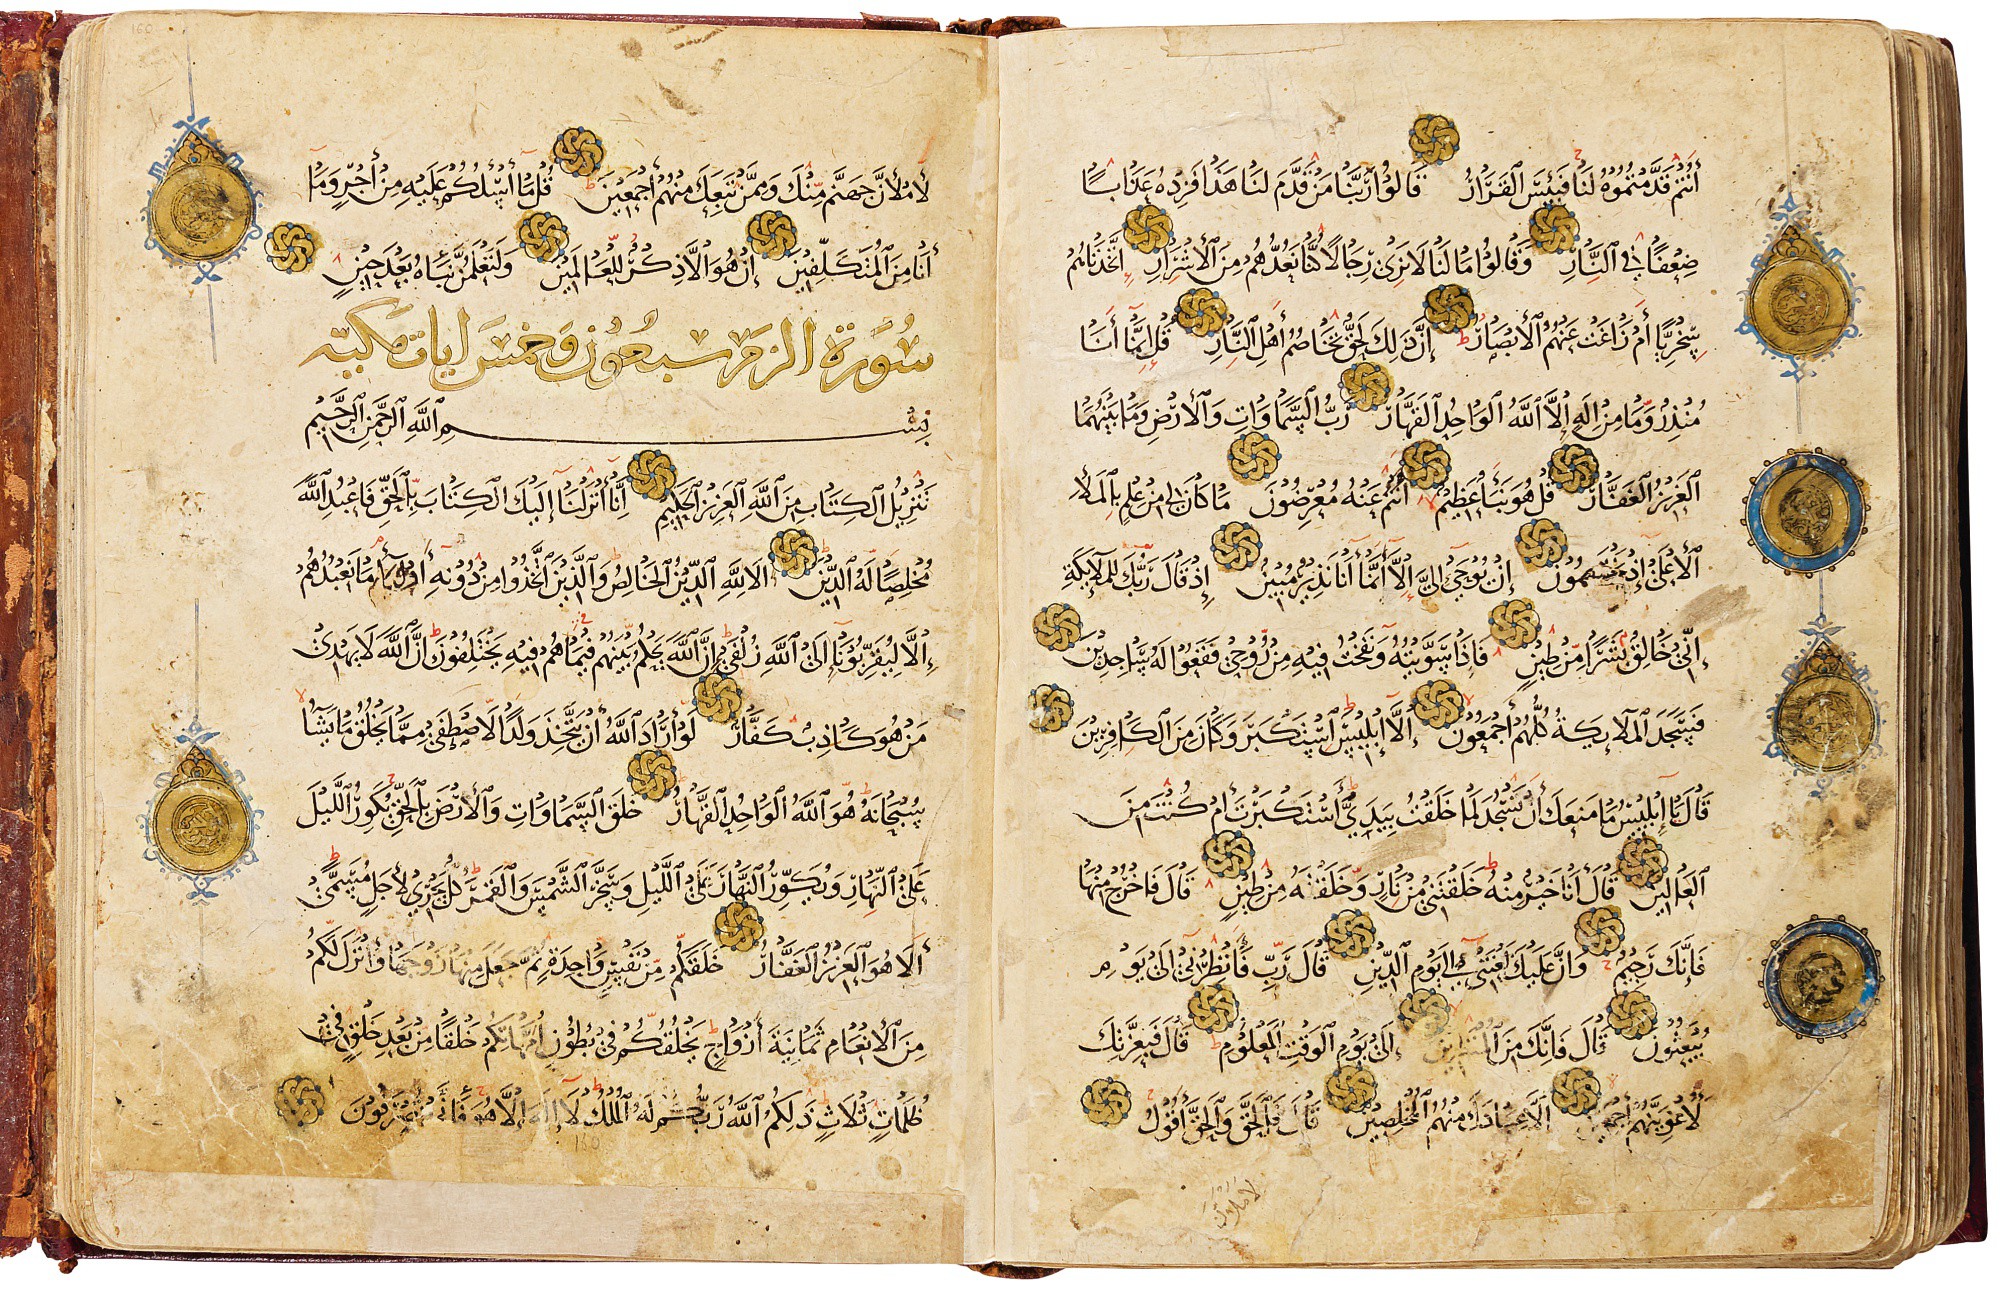 أنتم قدمتموه لنا فبئس القرار قالوا ربنا من قدم لنا هذا فزده عذابا
ضعفا في النار وقالوا ما لنا لا نرى رجالا كنا نعدهم من الأشرار اتخذناهم
سخريا أم زاغت عنهم الأبصار إن ذلك لحق تخاصم أهل النار قل إنما أنا
منذر وما من إله إلا الله الواحد القهار رب السماوات والأرض وما بينهما
العزيز الغفار قل هو نبأ عظيم أنتم عنه معرضون ما كان لي من علم بالملأ
الأعلى إذ يختصمون إن يوحى إلي إلا أنما أنا نذير مبين إذ قال ربك للملائكة
إني خالق بشرا من طين فإذا سويته ونفخت فيه من روحي فقعوا له ساجدين
فسجد الملائكة كلهم أجمعون إلا إبليس استكبر وكان من الكافرين
قال يا إبليس ما منعك أن تسجد لما خلقت بيدي أستكبرت أم كنت من
العالين قال أنا خير منه خلقتني من نار وخلقته من طين قال فاخرج منها
فإنك رجيم وإن عليك لعنتي إلى يوم الدين قال رب فأنظرني إلى يوم
يبعثون قال فإنك من المنظرين إلى يوم الوقت المعلوم قال فبعزتك
لأغوينهم أجمعين إلا عبادك منهم المخلصين قال فالحق والحق أقول
لأملأن
160
لأملأن جهنم منك وممن تبعك منهم أجمعين قل ما أسئلكم عليه من أجر وما
أنا من المتكلفين إن هو إلا ذكر للعالمين ولتعلمن نبأه بعد حين
سورة الزمر سبعون وخمس ايات مكية
بسم الله الرحمن الرحيم
تنزيل الكتاب من الله العزيز الحكيم إنا أنزلنا إليك الكتاب بالحق فاعبد الله
مخلصا له الدين ألا لله الدين الخالص والذين اتخذوا من دونه أولياء ما نعبدهم
إلا ليقربونا إلى الله زلفى إن الله يحكم بينهم فيما هم فيه يختلفون إن الله لا يهدي
من هو كاذب كفار لو أراد الله أن يتخذ ولدا لاصطفى مما يخلق ما يشاء
سبحانه هو الله الواحد القهار خلق السماوات والأرض بالحق يكور الليل
على النهار ويكور النهار على الليل وسخر الشمس والقمر كل يجري لأجل مسمى
ألا هو العزيز الغفار خلقكم من نفس واحدة ثم جعل منها زوجها وأنزل لكم
من الأنعام ثمانية أزواج يخلقكم في بطون أمهاتكم خلقا من بعد خلق في
ظلمات ثلاث ذلكم الله ربكم له الملك لا إله إلا هو فأنى تصرفون
160